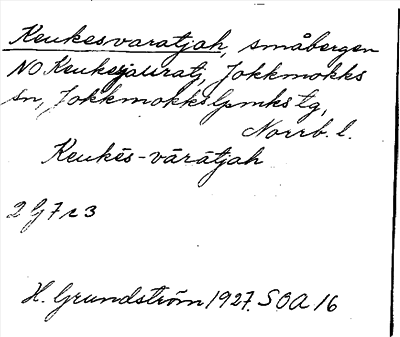 Keukesvaratjah, småbergen
NO Keukejauratj, Jokkmokks
sn, Jokkmokks lpmks tg,
Norrb. l.
Keukēs-vāràtjah
2 G 7 c 3
H. Grundström 1927. SOA 16